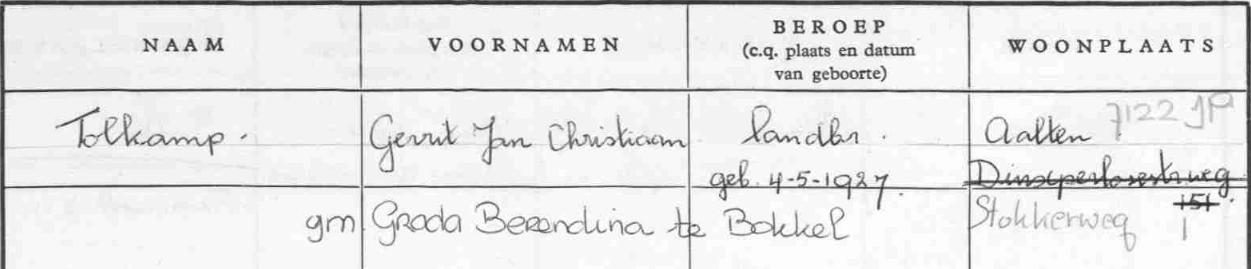 NAAM VOORNAMEN BEROEP (c.q. plaats en datum van geboorte) WOONPLAATS
Tolkamp. Gerrit Jan Christiaan landbr. Aalten 7122 JP
geb. 4-5-1927. Dinxperlosestrweg 151
gm Grada Berendina te Bokkel Stokkerweg 1